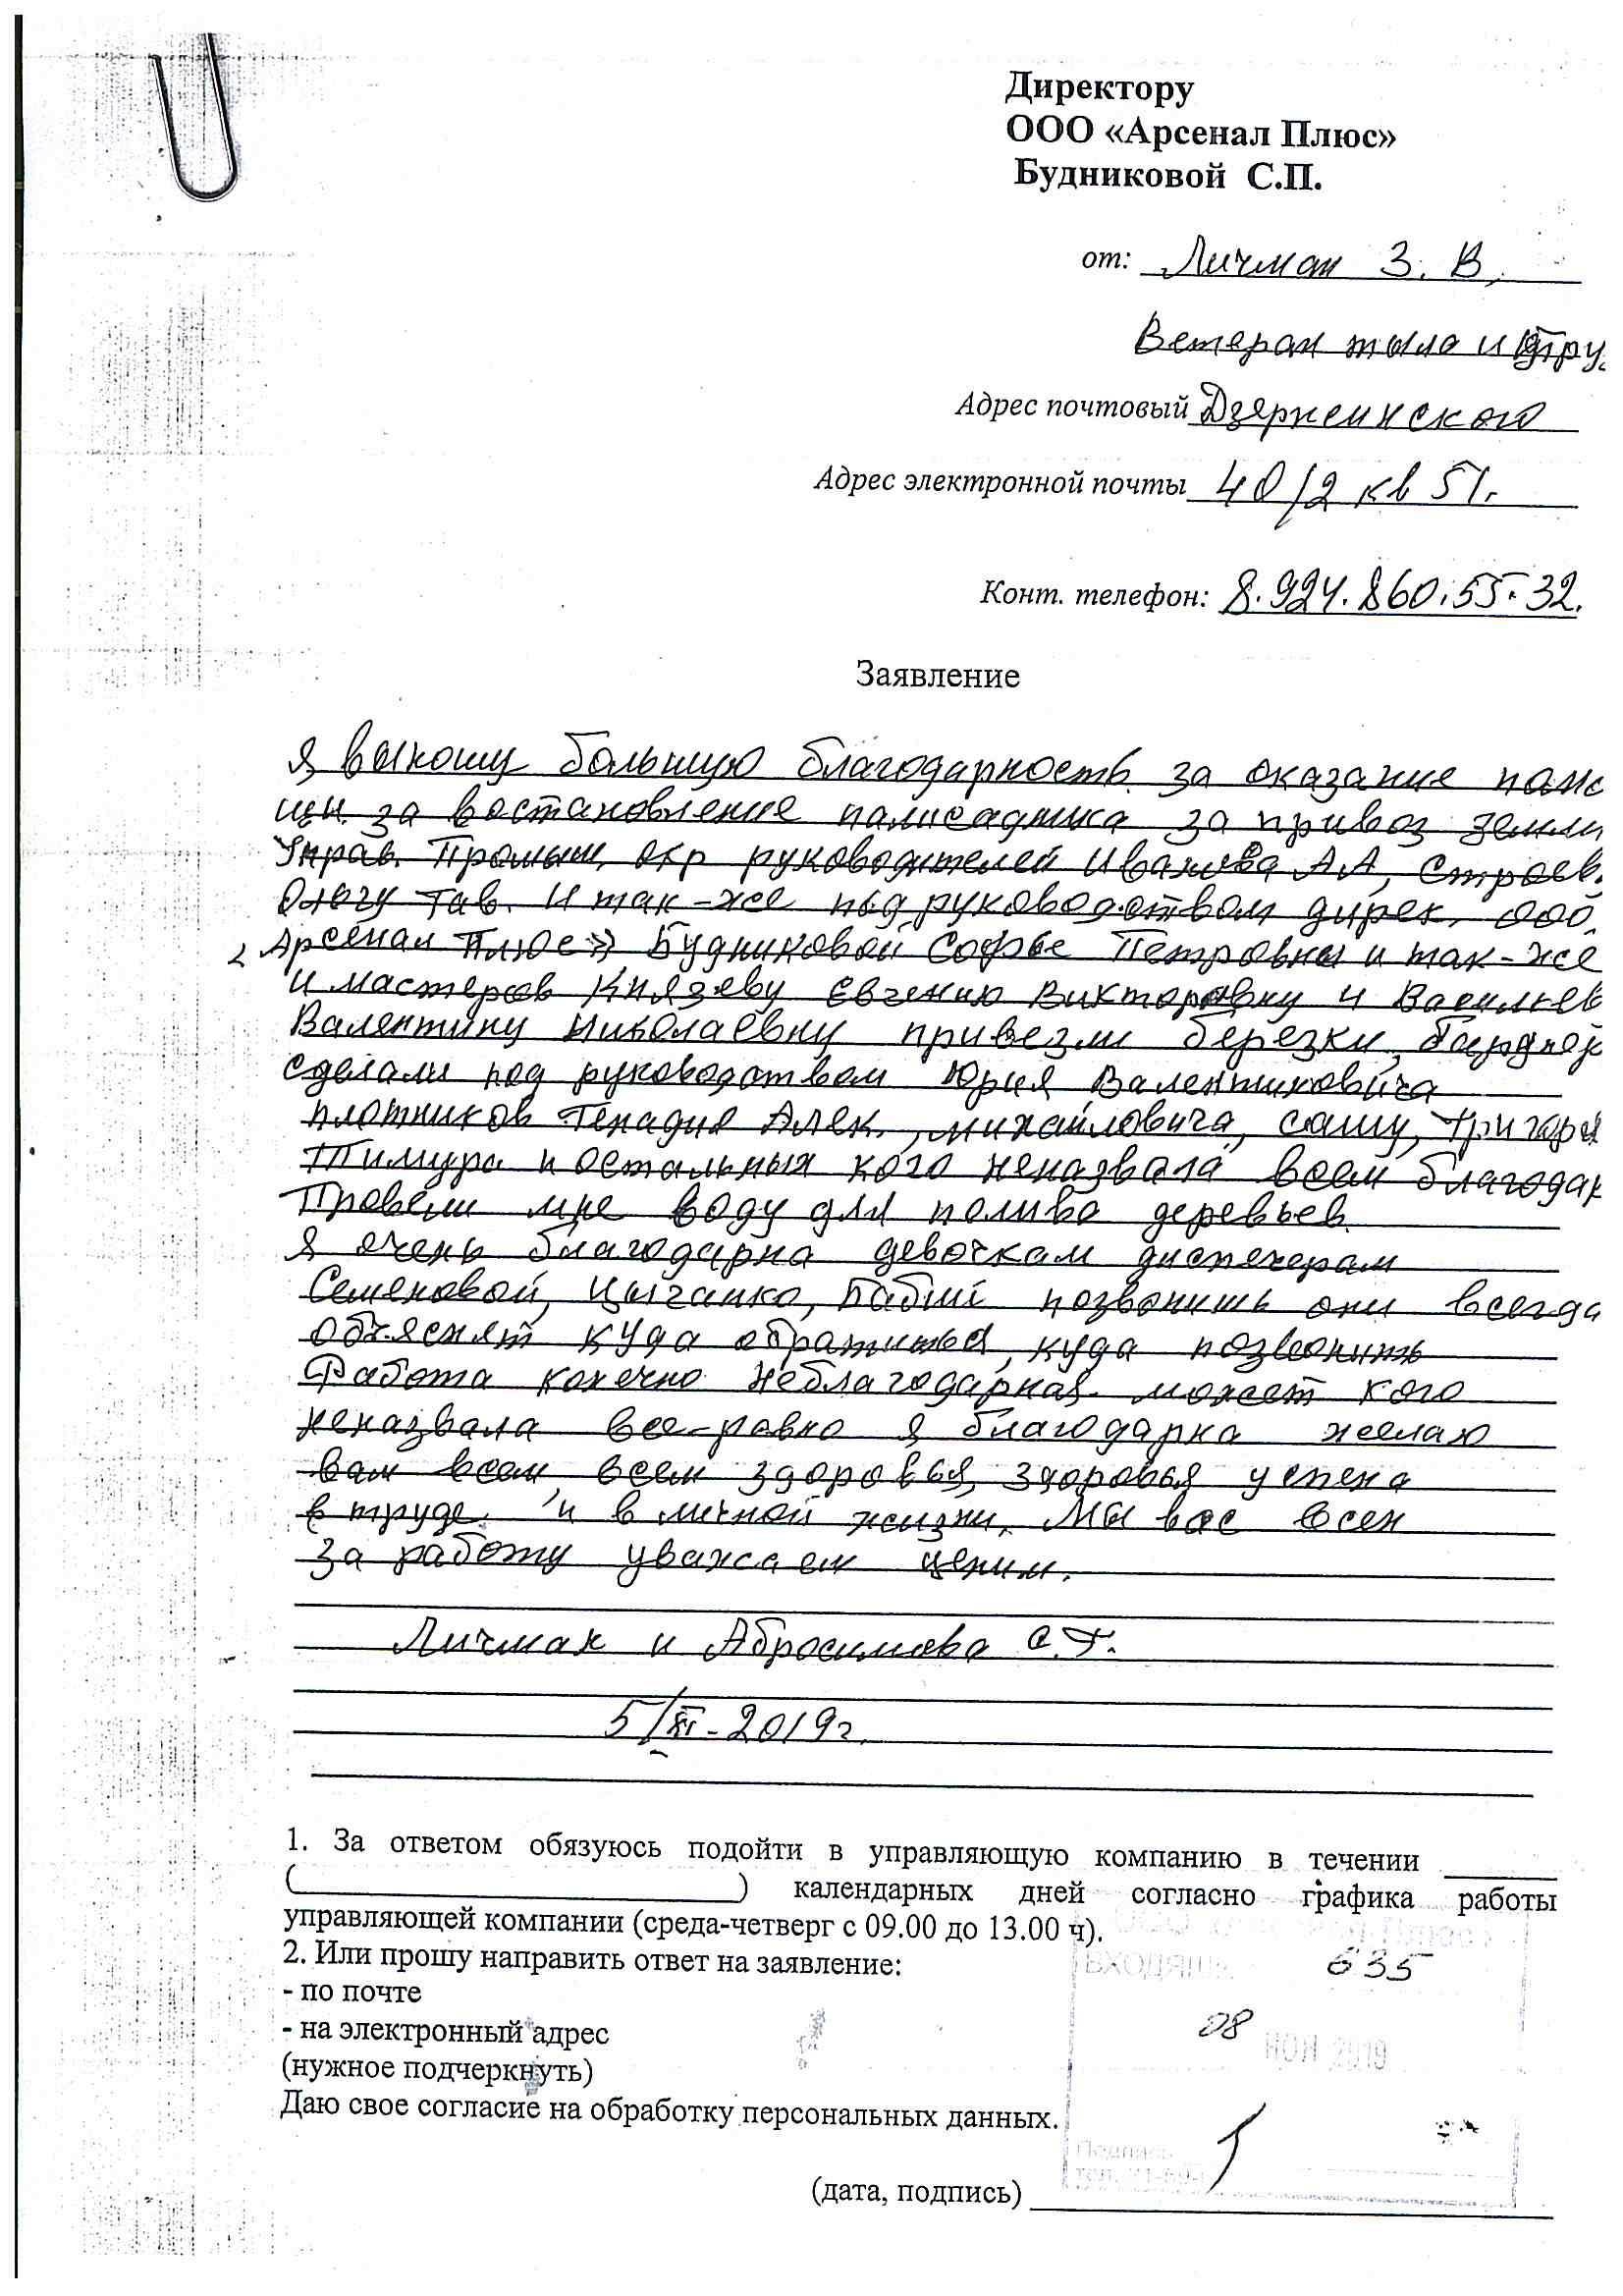 Директору
ООО «Арсенал Плюс»
Будниковой С.П.
от: Личман З. В,
Ветеран тыла и тру
Адрес почтовый Дзержинского
Адрес электронной почты 40/2 кв 51.
Конт. телефон: 8.924.860.55.32.
Заявление
Я выношу большую благодарность за оказание помо
щи за востановление палисадника за привоз земли
Управ. Промыш. окр руководителей Иванова А А, Строев.
Ольгу Гав. И так-же под руководством дирек. ООО.
«Арсенал Плюс» Будниковой Софье Петровны и так-же
и мастеров Князеву Евгению Викторовну и Васильев
Валентину Николаевну привезли березки,
сделали под руководством Юрия Валентиновича
плотников Генадия Алек., Михайловича, Сашу, Григория
Тимура и остальных кого неназвала всем благодар
Провели мне воду для полива деревьев.
Я очень благодарна девочкам диспечерам
Семеновой, Цыганко, Бабий позвонишь они всегда
объяснят куда обратиться, куда позвонить
Работа конечно неблагодарная может кого
неназвала все-равно я благодарна желаю
вам всем всем здоровья, здоровья успеха
в труде и в личной жизни. Мы вас всех
за работу уважаем ценим.
Личман и Абросимова С.Г.
5/XI-2019г.
1. За ответом обязуюсь подойти в управляющую компанию в течении
(                    ) календарных дней согласно графика работы
управляющей компании (среда-четверг с 09.00 до 13.00 ч).
2. Или прошу направить ответ на заявление:
- по почте
- на электронный адрес
(нужное подчеркнуть)
Даю свое согласие на обработку персональных данных.
(дата, подпись)
635
08